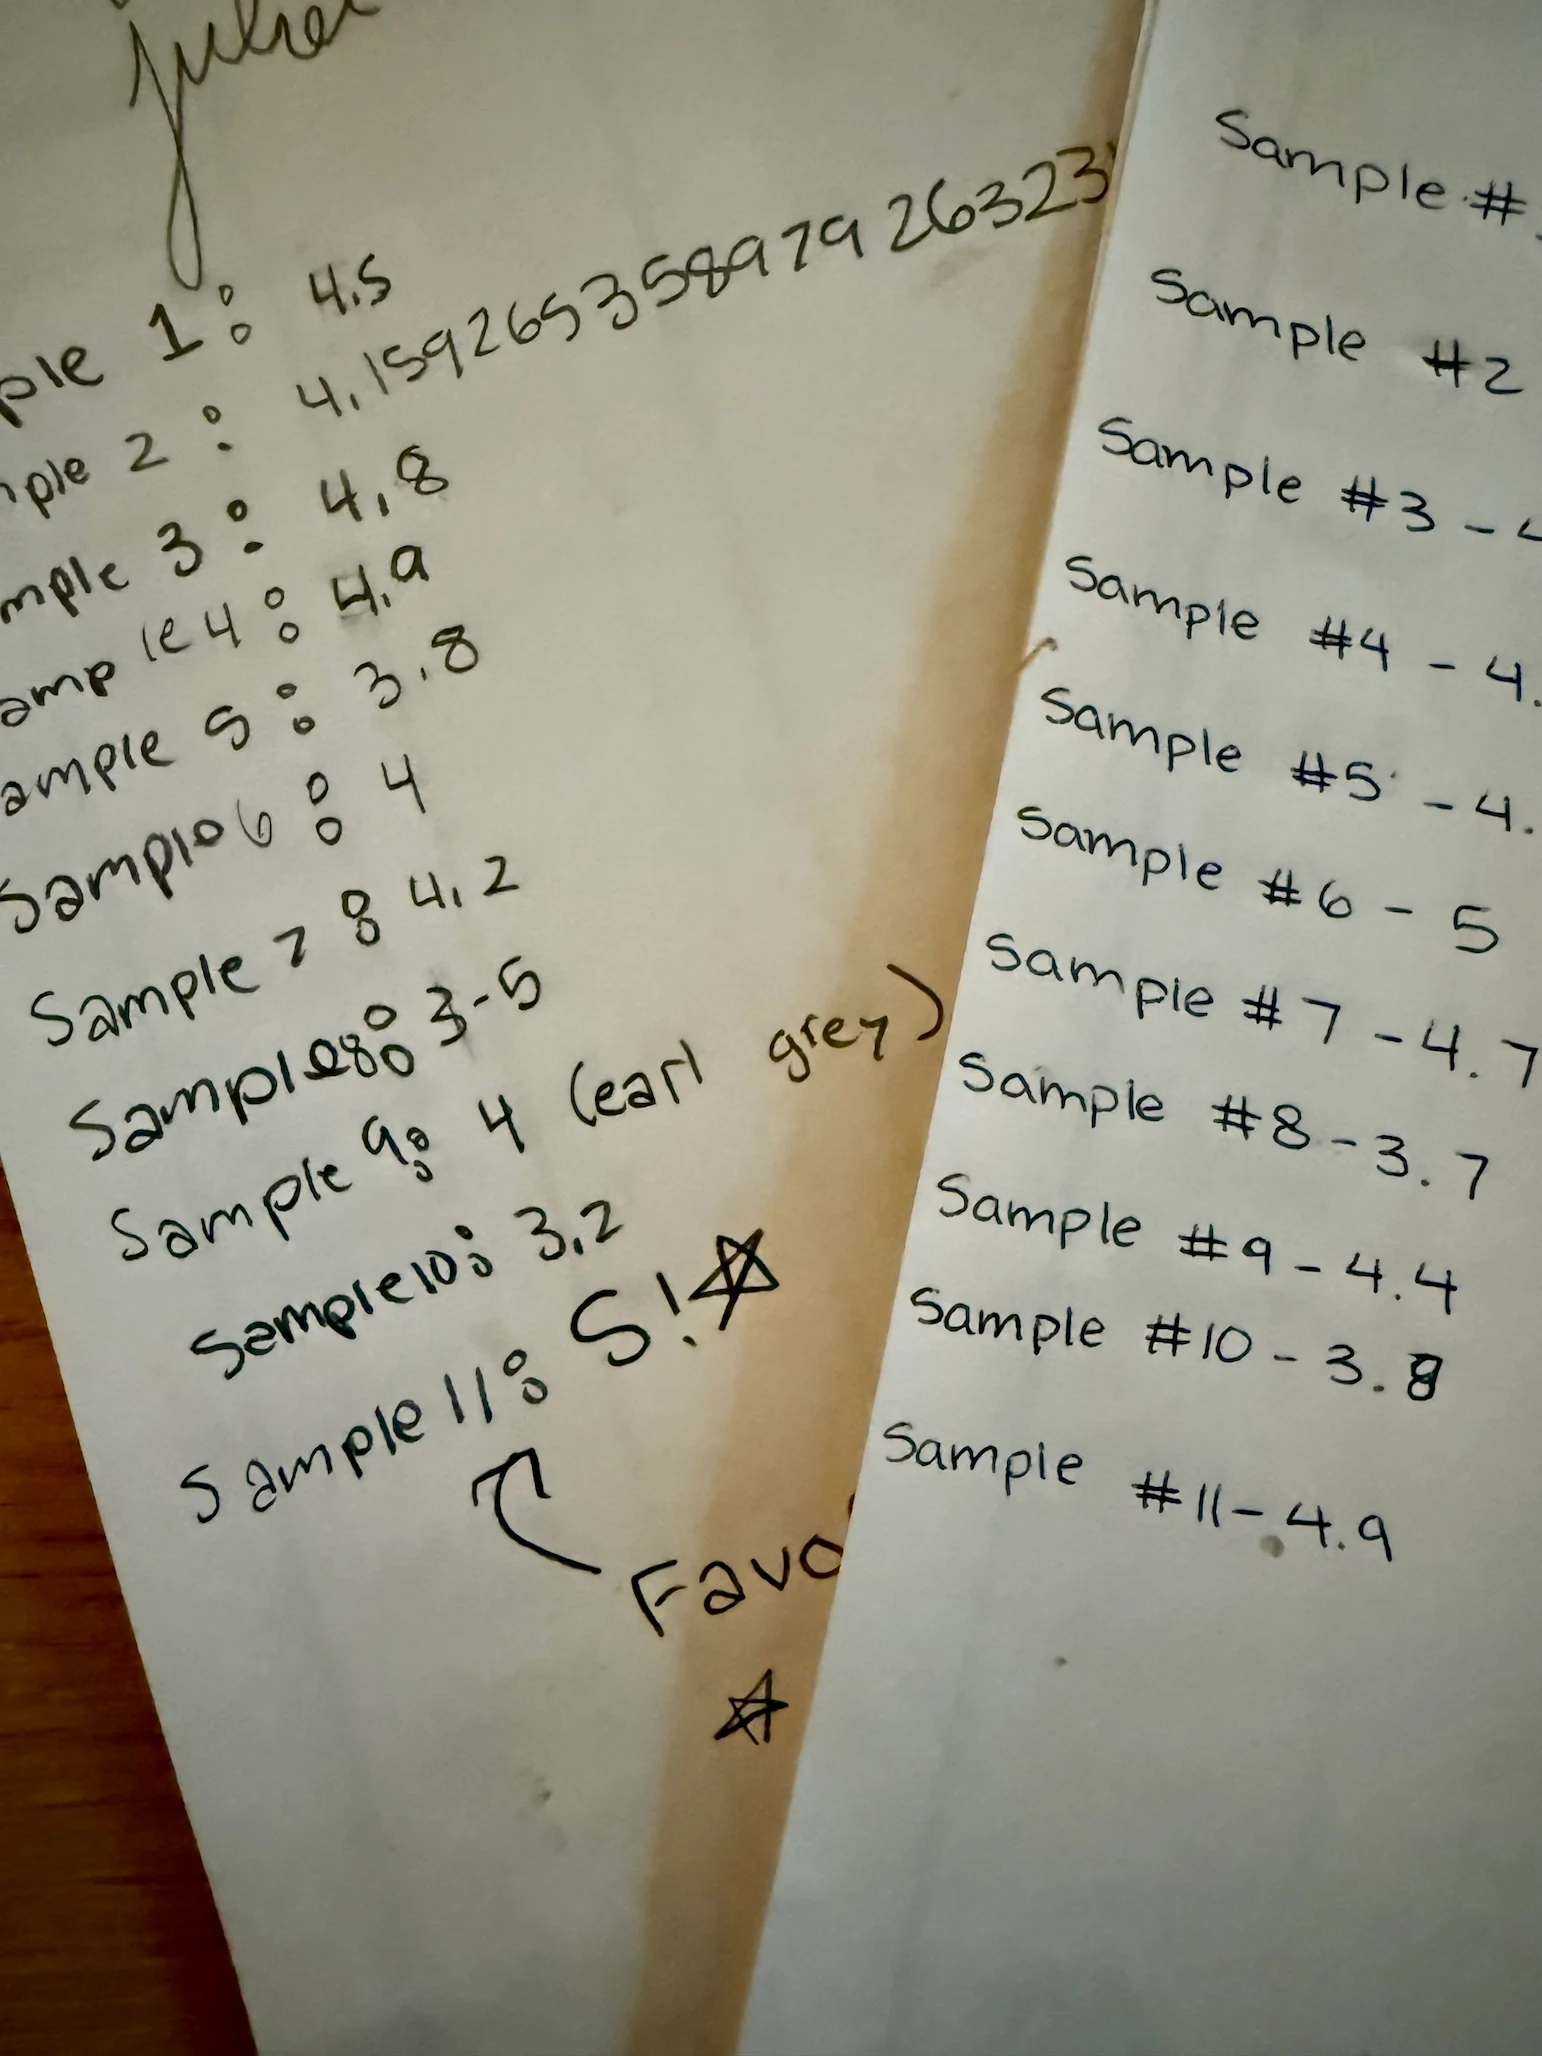 ple 1: 4.5
ple 2: 4.15926535897926323
mple 3: 4.8
ample 4: 4.9
ample 5: 3.8
Sample 6: 4
Sample 7: 4.2
Sample 8: 3.5
Sample 9: 4 (earl grey)
Sample 10: 3.2
Sample 11: 5!
Favo
Sample #
Sample #2
Sample #3 -
Sample #4 - 4.
Sample #5 - 4.
Sample #6 - 5
Sample #7 - 4.7
Sample #8 - 3.7
Sample #9 - 4.4
Sample #10 - 3.8
Sample #11 - 4.9